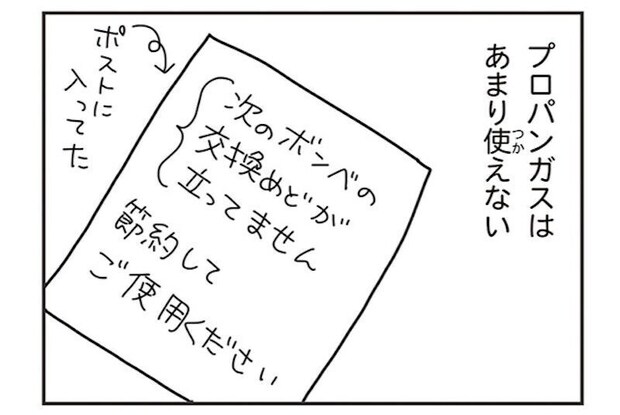 プロパンガスは
あまり使えない
つか
ポストに
入ってた
次のボンベの
交換めどが
立ってません
節約して
ご使用ください